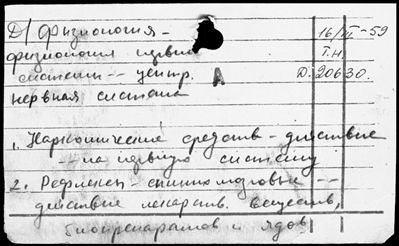 Д/ Физиология - 16/III-59
физиология нервн. Т.Н.
системы -- центр. А Д. 20630.
нервная система
1. Наркотические средства - действие
-- на нервную систему
2. Рефлексы - спинномозговые --
действие лекарств. веществ,
биопрепаратов и ядов